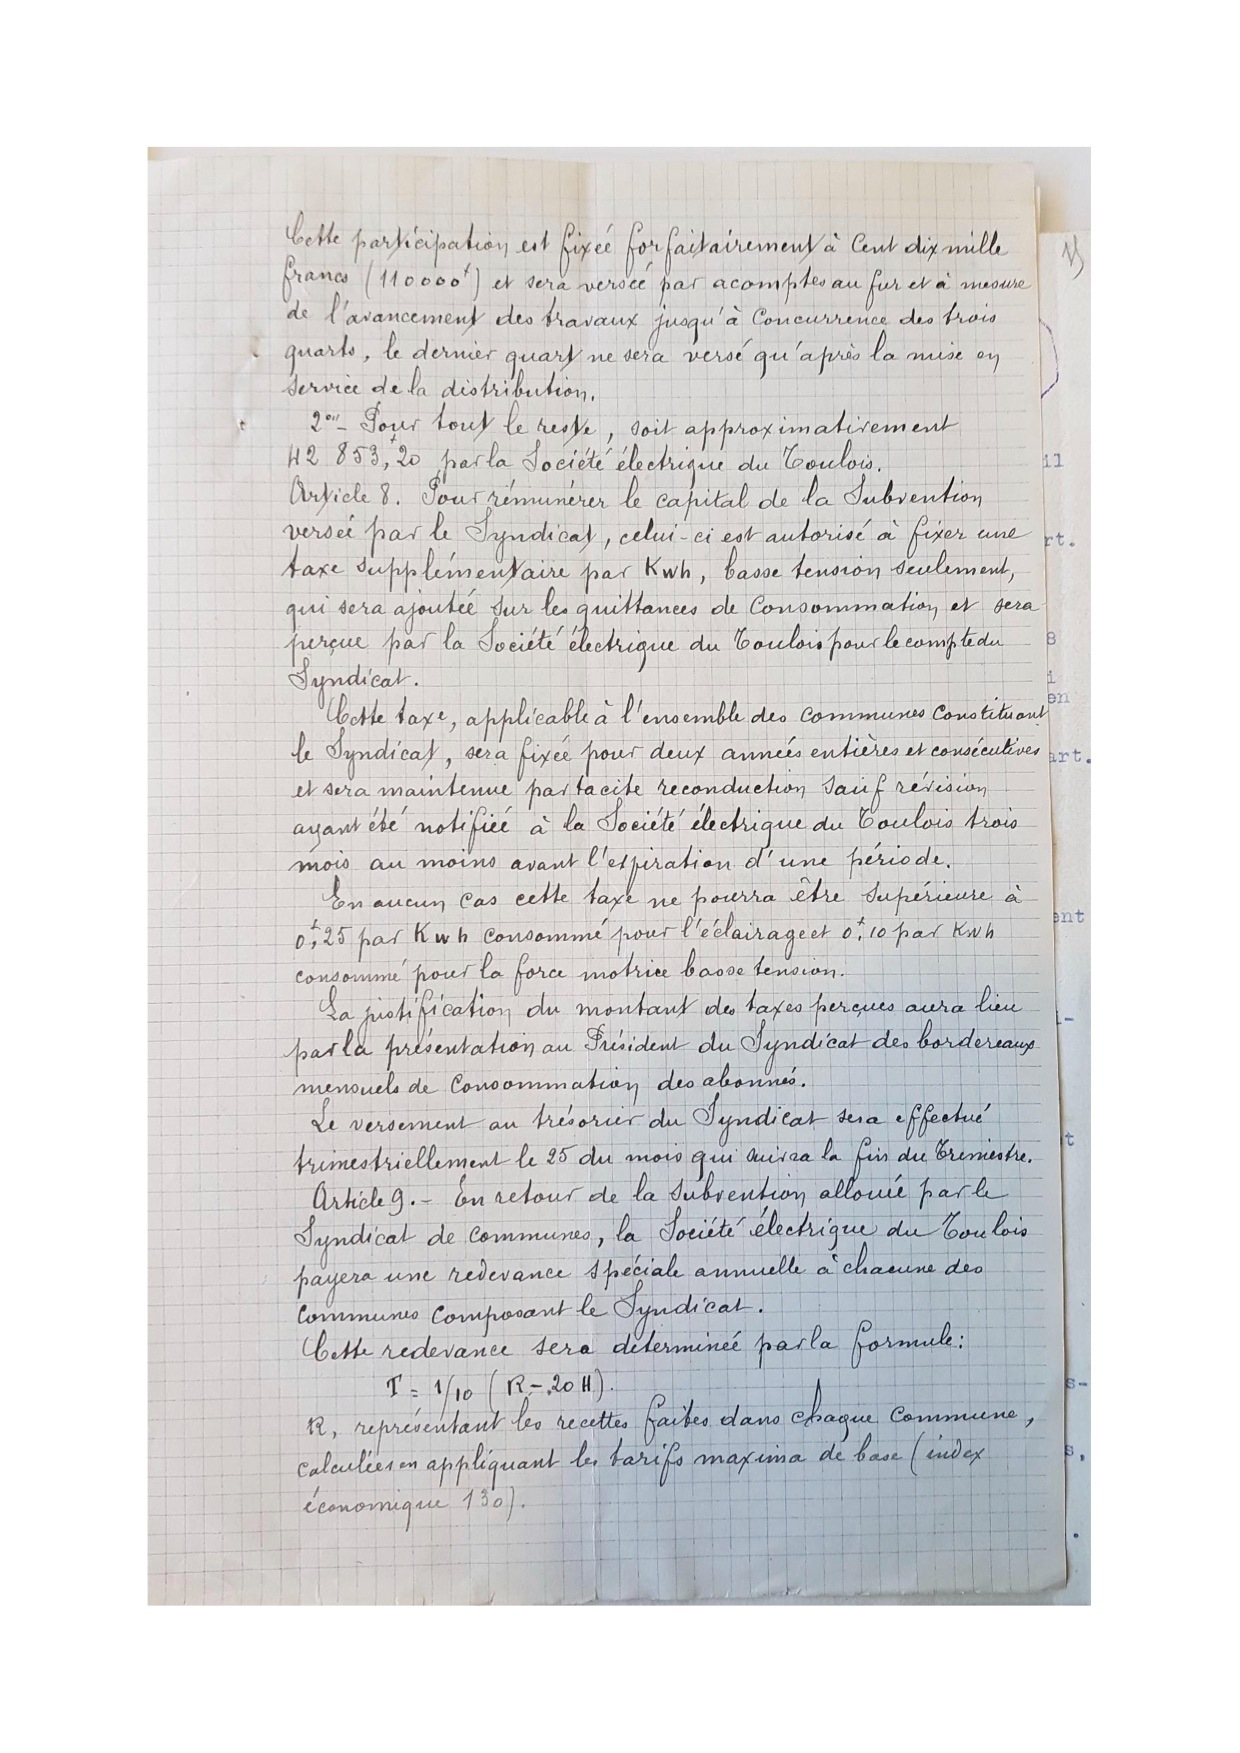 Cette participation est fixée forfaitairement à Cent dix mille
francs (110000f) et sera versée par acomptes au fur et à mesure
de l'avancement des travaux jusqu'à Concurrence des trois
quarts, le dernier quart ne sera versé qu'après la mise en
service de la distribution.
2º- Pour tout le reste, soit approximativement
42 853,f20 par la Société électrique du Toulois.
Article 8. Pour rémunérer le capital de la Subvention
versée par le Syndicat, celui-ci est autorisé à fixer une
taxe supplémentaire par Kwh, basse tension seulement,
qui sera ajoutée sur les quittances de Consommation et sera
perçue par la Société électrique du Toulois pour le compte du
Syndicat.
Cette taxe, applicable à l'ensemble des communes Constituant
le Syndicat, sera fixée pour deux années entières et consécutives
et sera maintenue par tacite reconduction sauf révision
ayant été notifiée à la Société électrique du Toulois trois
mois au moins avant l'expiration d'une période.
En aucun cas cette taxe ne pourra être supérieure à
0f,25 par Kwh consommé pour l'éclairage et 0f,10 par Kwh
consommé pour la force motrice basse tension.
La justification du montant des taxes perçues aura lieu
par la présentation au Président du Syndicat des bordereaux
mensuels de Consommation des abonnés.
Le versement au trésorier du Syndicat sera effectué
trimestriellement le 25 du mois qui suivra la fin du Trimestre.
Article 9.- En retour de la subvention allouée par le
Syndicat de communes, la Société électrique du Toulois
payera une redevance spéciale annuelle à chacune des
communes composant le Syndicat.
Cette redevance sera déterminée par la formule:
T = 1/10 (R - 20 H).
R, représentant les recettes faites dans chaque Commune,
calculées en appliquant les tarifs maxima de base (index
économique 130).
il
rt.
8
i
en
art.
ent
i-
t
s-
s.
.